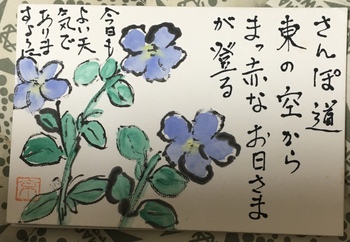 さんぽ道
東の空から
まっ赤なお日さま
が登る
今日も
よい天
気で
ありま
すように